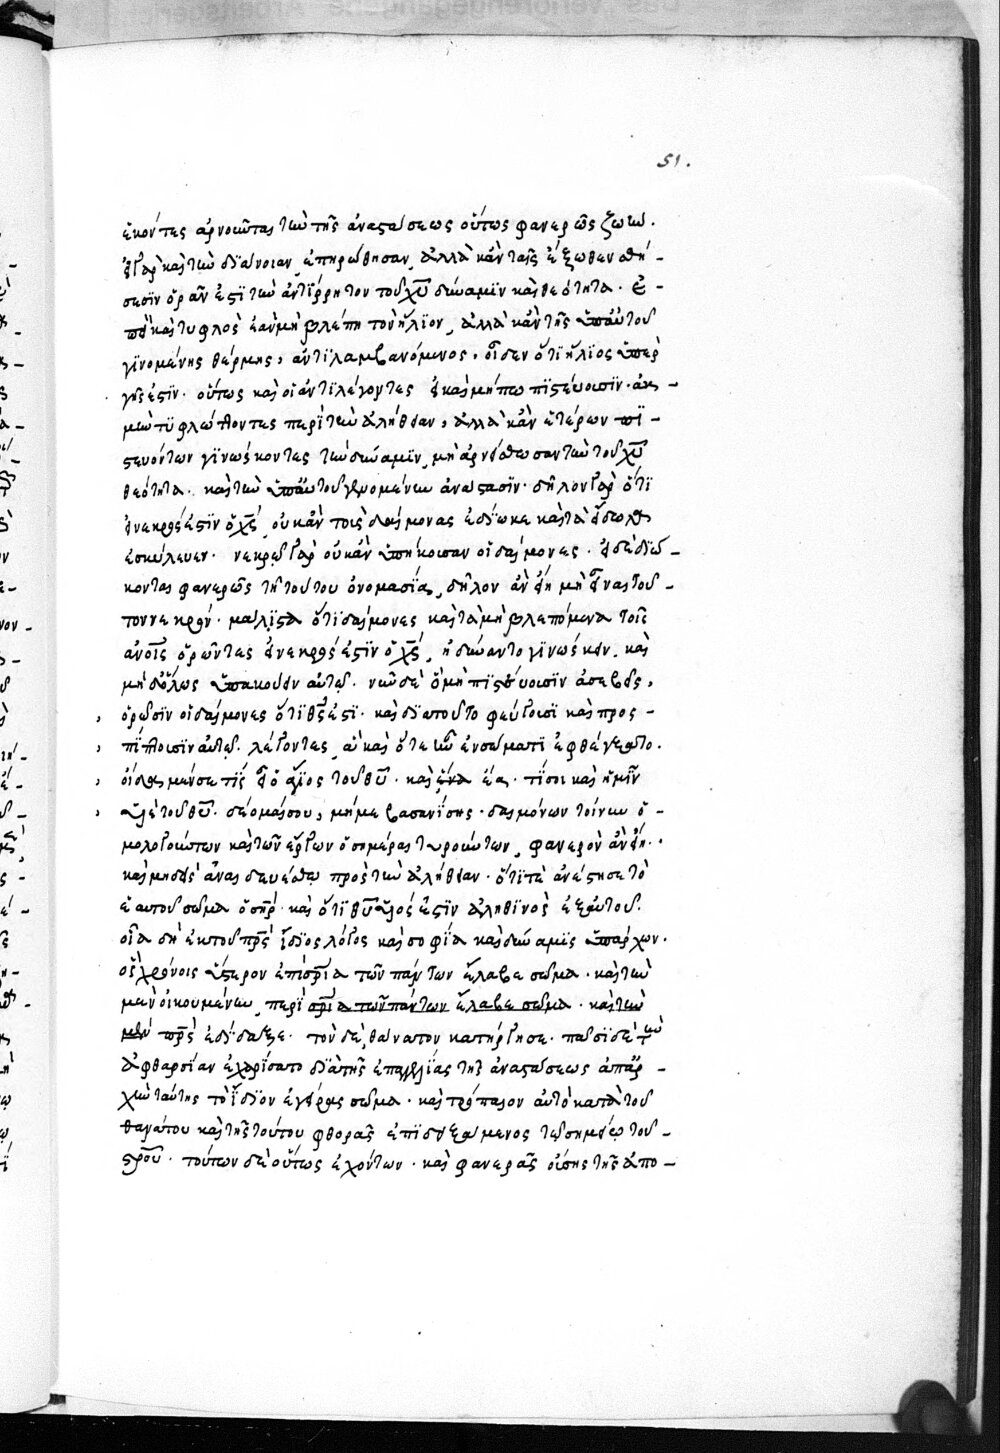 51.
ἑκόντες ἀρνοῦνται τὴν τῆς ἀναστάσεως οὕτως φανερῶς ζῶν.
εἰ γὰρ καὶ τὴν διάνοιαν ἐπηρώθησαν, ἀλλὰ κἂν ταῖς ἔξωθεν αἰσθή-
σεσιν ὁρᾶν ἔστι τὴν ἀντίρρητον τοῦ χυ δύναμιν καὶ θεότητα.
καὶ τυφλὸς ἐὰν μὴ βλέπη τὸν ἥλιον, ἀλλὰ κἂν τῆς ὑπ' αὐτοῦ
γινομένης θέρμης, ἀντιλαμβανόμενος, οἶδεν ὅτι ἥλιος ὑπὲρ
γῆς ἐστιν. οὕτως καὶ οἱ ἀντιλέγοντες εἰ καὶ μήπω πιστεύουσιν.
τυφλώττοντες περὶ τὴν ἀλήθειαν, ἀλλὰ κἂν ἑτέρων πι-
στευόντων γινώσκοντες τὴν δύναμιν, μὴ ἀρνείσθωσαν τὴν τοῦ χυ
θεότητα. καὶ τὴν ὑπ' αὐτοῦ γενομένην ἀνάστασιν. δῆλον γὰρ ὅτι
εἰ νεκρός ἐστιν ὁ χς, οὐκ ἂν τοὺς δαίμονας ἐδίωκε καὶ τὰ εἴδωλα
ἐσκύλευεν. νεκρῷ γὰρ οὐκ ἂν ὑπήκουσαν οἱ δαίμονες. εἰ δὲ διώ-
κονται φανερῶς τῇ τούτου ὀνομασία, δῆλον ἂν εἴη μὴ εἶναι τοῦ-
τον νεκρόν. μάλιστα ὅτι δαίμονες καὶ τὰ μὴ βλεπόμενα τοῖς
ἀνοις ὁρῶντες εἰ νεκρός ἐστιν ὁ χς, ἠδύναντο γινώσκειν, καὶ
μηδόλως ὑπακούειν αὐτῷ. νῦν δὲ ὃ μὴ πιστεύουσιν ἀσεβεῖς,
ὁρῶσιν οἱ δαίμονες ὅτι θς ἐστι. καὶ διὰ τοῦτο φεύγουσι καὶ προς-
πίπτουσιν αὐτῷ. λέγοντες, ἃ καὶ ὅτε ἦν ἐν σώματι ἐφθέγγοντο.
οἴδαμέν σε τίς εἶ ὁ ἅγιος τοῦ θυ. καὶ ἔα. τί σοι καὶ ἡμῖν
υἱὲ τοῦ θυ. δέομαί σου, μή με βασανίσης. δαιμόνων τοίνυν ὁ-
μολογούντων καὶ τῶν ἔργων ὁσημέραι μαρτυρούντων, φανερὸν ἂν εἴη.
καὶ μηδεὶς ἀναιδευέσθω πρὸς τὴν ἀλήθειαν. ὅτι τε ἀνέστησε τὸ
ἑαυτοῦ σῶμα ὁ σηρ. καὶ ὅτι θυ υἱός ἐστιν ἀληθινὸς ἐξ αὐτοῦ.
οἷα δὴ ἐκ τοῦ πρς ἴδιος λόγος καὶ σοφία καὶ δύναμις ὑπάρχων.
ὃς χρόνοις ὕστερον ἐπὶ σρία τῶν πάντων ἔλαβε σῶμα. καὶ τὴν
μὲν οἰκουμένην, περὶ σρία τῶν πάντων ἔλαβε σῶμα. καὶ τὴν
μὲν πρς ἐδίδαξε. τὸν δὲ θάνατον κατήργησε. πᾶσι δὲ τὴν
ἀφθαρσίαν ἐχαρίσατο διὰ τῆς ἐπαγγελίας τῆς ἀναστάσεως ἀπαρ-
χὴν ταύτης τὸ ἴδιον ἐγείρας σῶμα. καὶ τρόπαιον αὐτὸ κατὰ τοῦ
θανάτου καὶ τῆς τούτου φθορᾶς ἐπιδειξάμενος τῷ σημείῳ τοῦ-
στρου. τούτων δὲ οὕτως ἐχόντων. καὶ φανερᾶς οὔσης τῆς ἀπο-